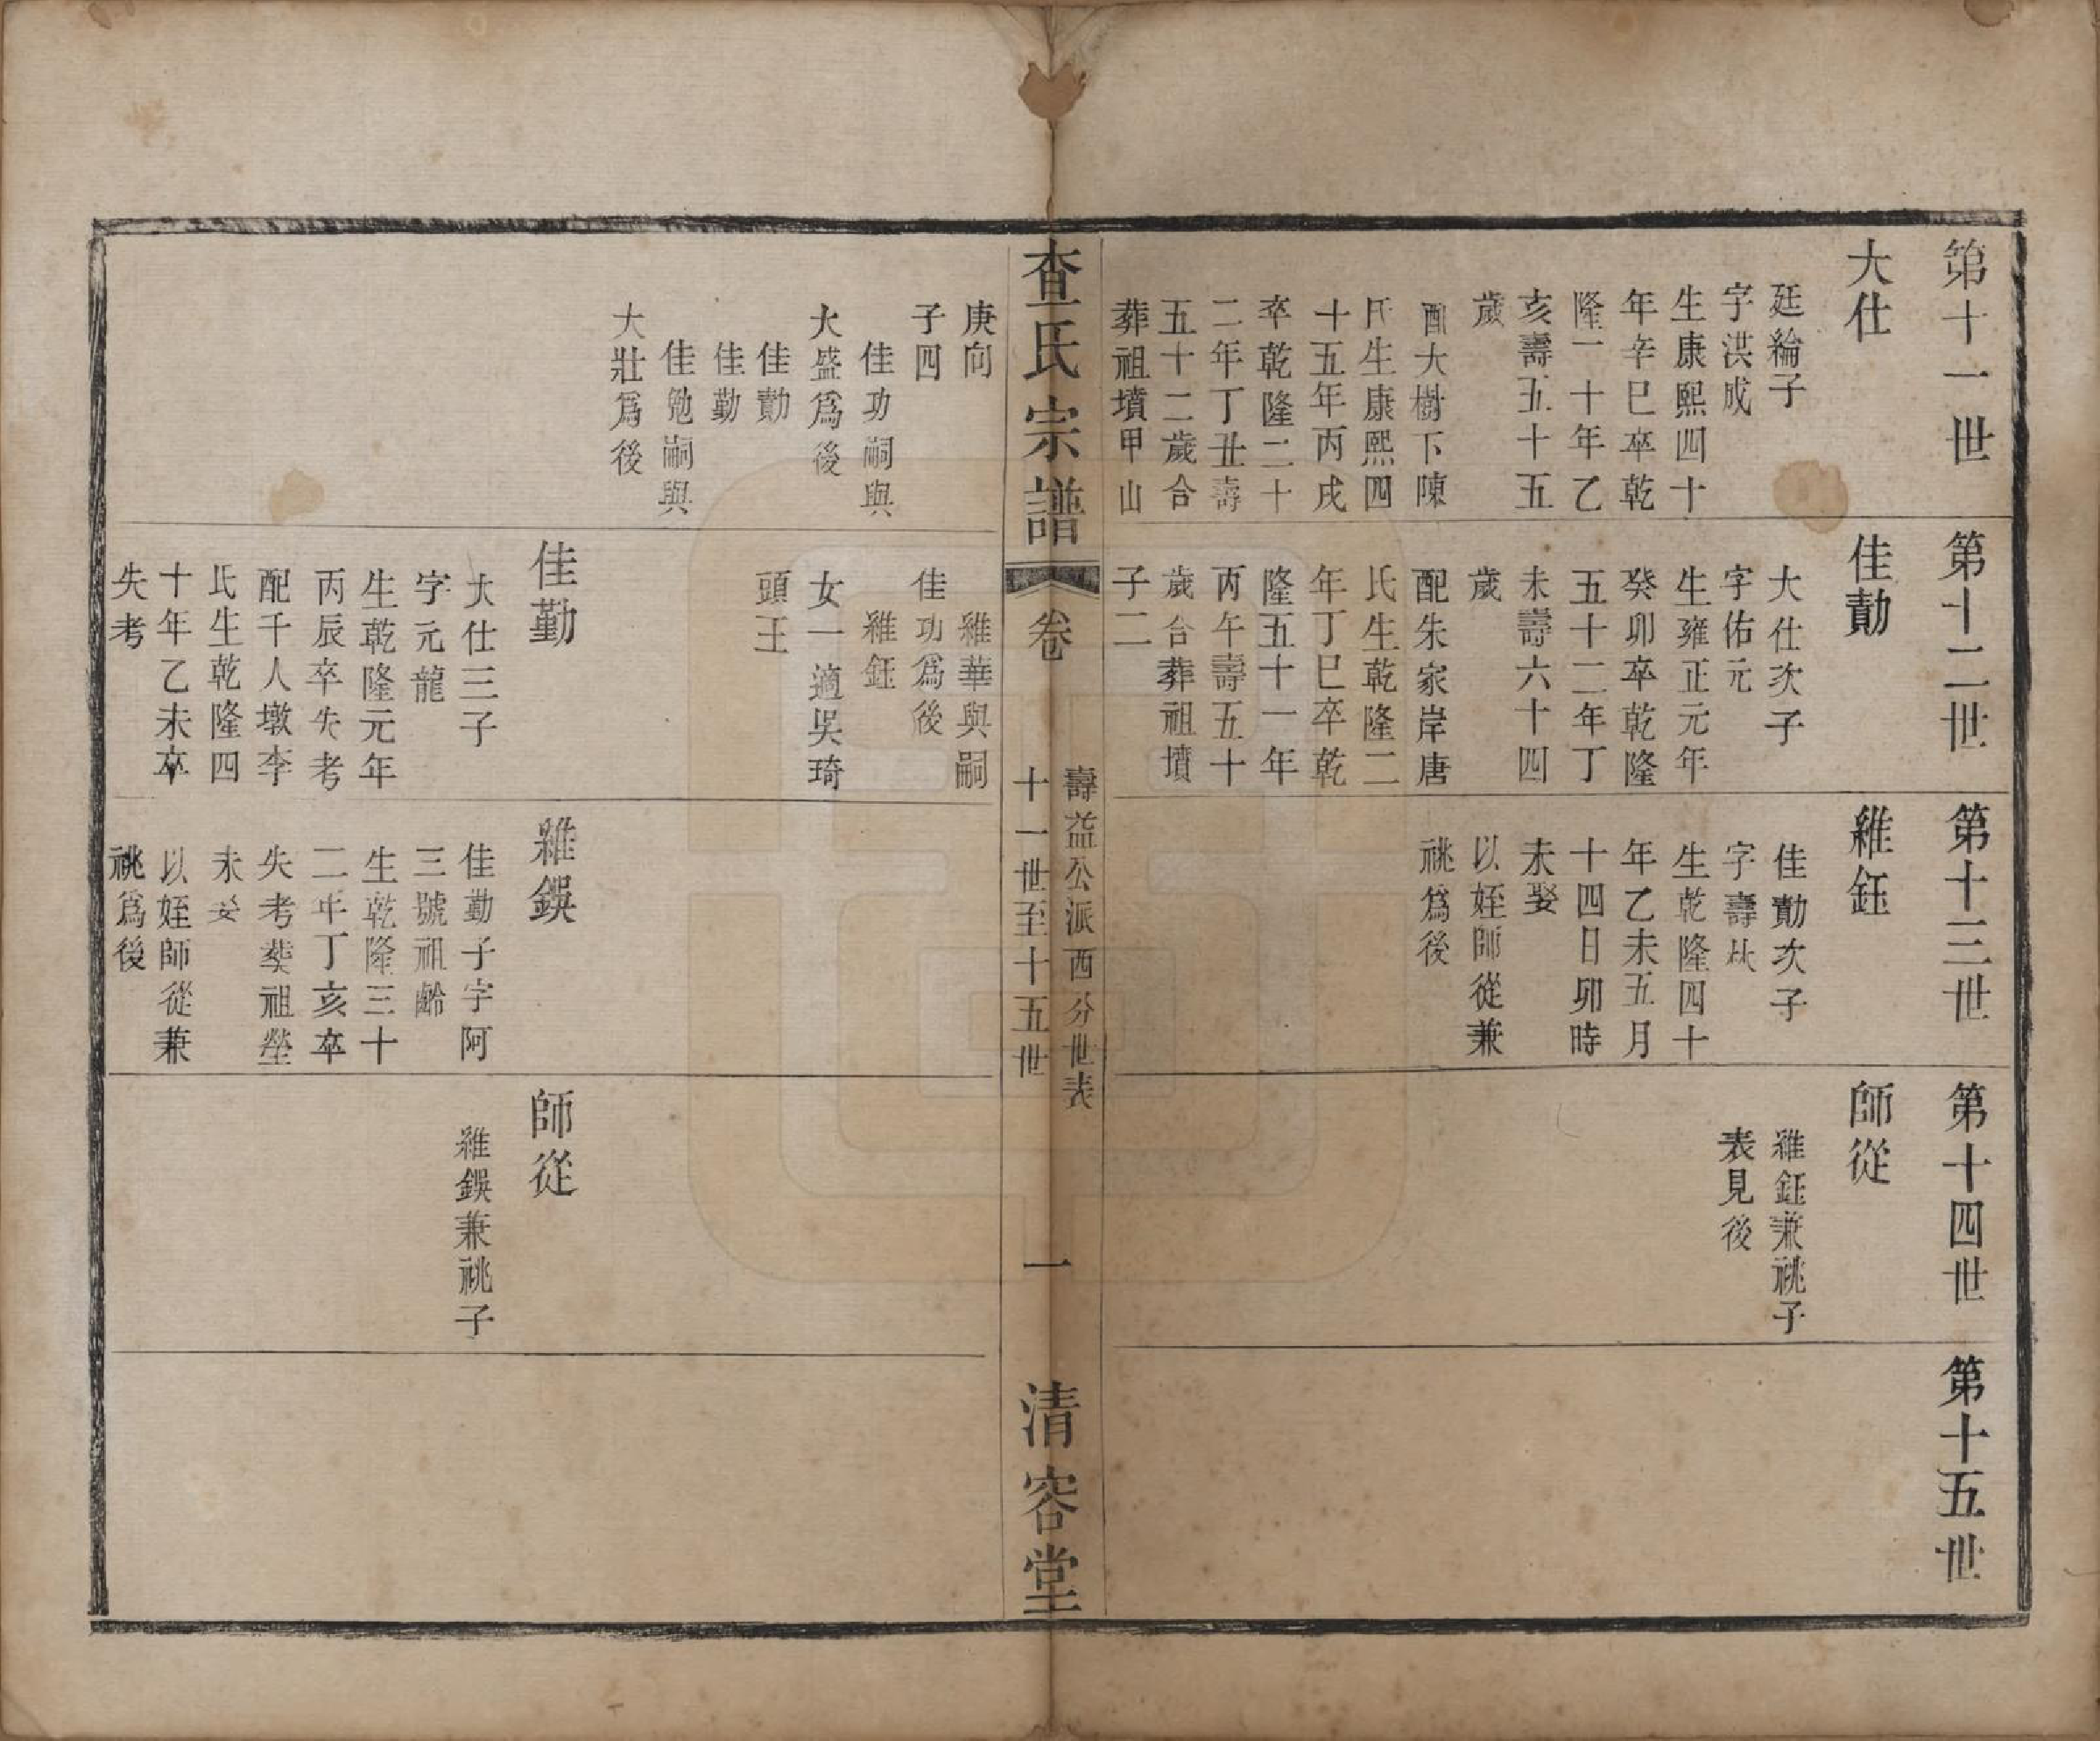 第十一世
大仕
廷綸子
字洪成
生康熙四十
年辛巳卒乾
隆一十年乙
亥壽五十五
歲
配大樹下陳
氏生康熙四
十五年丙戌
卒乾隆二十
二年丁丑壽
五十二歲合
葬祖墳甲山
庚向
子四
佳功嗣與
大盛爲後
佳勣
佳勤
佳勉嗣與
大壯爲後
第十二世
佳勣
大仕次子
字佑元
生雍正元年
癸卯卒乾隆
五十二年丁
未壽六十四
歲
配朱家岸唐
氏生乾隆二
年丁巳卒乾
隆五十一年
丙午壽五十
歲合葬祖墳
子二
維華與嗣
佳功爲後
維鈺
女一適吳琦
頭王
佳勤
大仕三子
字元龍
生乾隆元年
丙辰卒失考
配千人墩李
氏生乾隆四
十年乙未卒
失考
第十三世
維鈺
佳勣次子
字壽林
生乾隆四十
年乙未五月
十四日卯時
未娶
以姪師從兼
祧爲後
維鍈
佳勤子字阿
三號祖齡
生乾隆三十
二年丁亥卒
失考葬祖塋
未娶
以姪師從兼
祧爲後
第十四世
師從
維鈺兼祧子
表見後
師從
維鍈兼祧子
第十五世
查氏宗譜
卷
壽益公派西分世表
十一世至十五世
一
清容堂